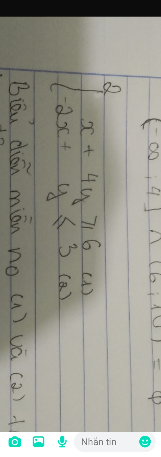 (-∞; 4] ∧ (6; 10) = φ
2
{ x + 4y ≥ 6 (1)
-2x + y ≤ 3 (2)
Biểu diễn miền no (1) và (2)
Nhắn tin